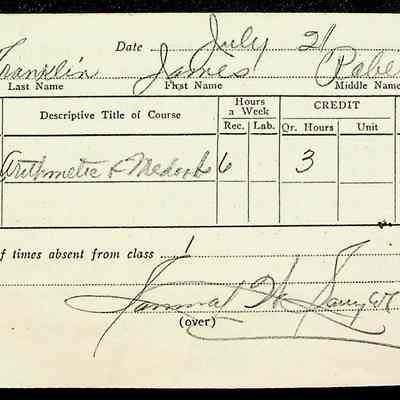 Date July 21
Franklin James Robe
Last Name First Name Middle Name
Descriptive Title of Course Hours a Week CREDIT
Rec. Lab. Qr. Hours Unit
Arithmetic & Methods 6 3
f times absent from class 1
(over)